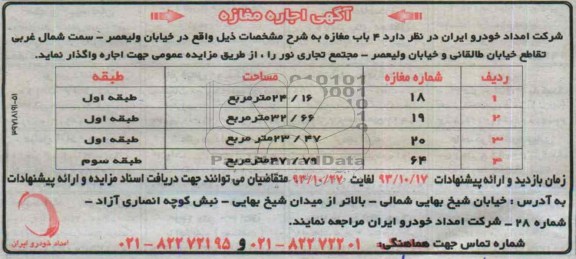 آگهی اجاره مغازه
شرکت امداد خودرو ایران در نظر دارد ۴ باب مغازه به شرح مشخصات ذیل واقع در خیابان ولیعصر – سمت شمال غربی
تقاطع خیابان طالقانی و خیابان ولیعصر – مجتمع تجاری نور را ، از طریق مزایده عمومی جهت اجاره واگذار نماید.
ردیف شماره مغازه مساحت طبقه
۱ ۱۸ ۲۴/۱۶ مترمربع طبقه اول
۲ ۱۹ ۳۲/۶۶ مترمربع طبقه اول
۳ ۲۰ ۲۳/۴۷ متر مربع طبقه اول
۴ ۶۴ ۴۷/۷۹ مترمربع طبقه سوم
زمان بازدید و ارائه پیشنهادات ۹۳/۱۰/۱۷ لغایت ۹۳/۱۰/۲۷ متقاضیان می توانند جهت دریافت اسناد مزایده و ارائه پیشنهادات
به آدرس : خیابان شیخ بهایی شمالی – بالاتر از میدان شیخ بهایی – نبش کوچه انصاری آزاد –
شماره ۲۸ – شرکت امداد خودرو ایران مراجعه نمایند.
شماره تماس جهت هماهنگی: ۸۲۲ ۷۲۲ ۰۱ – ۰۲۱ و ۸۲۲ ۷۲۱ ۹۵ – ۰۲۱
امداد خودرو ایران